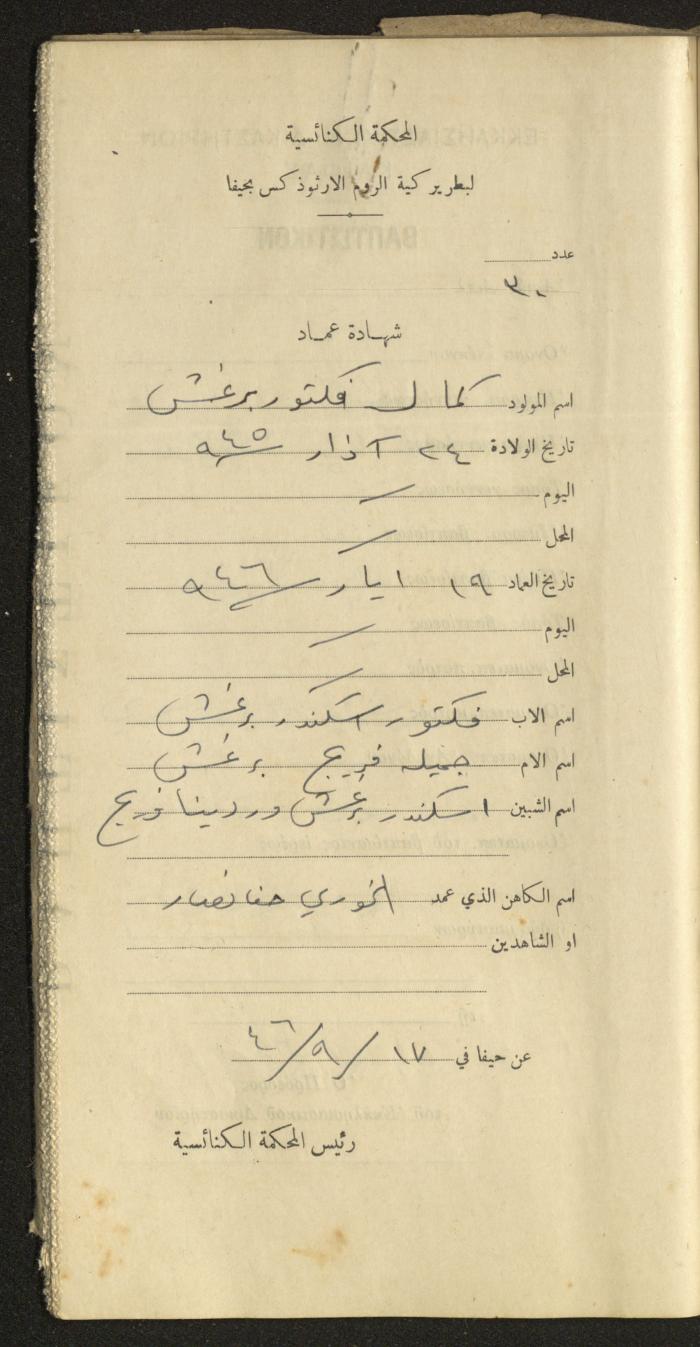 المحكمة الكنائسية
لبطريركية الروم الارثوذكس بحيفا
عدد
٣٠
شهادة عماد
اسم المولود كمال فكتور برغش
تاريخ الولادة ٢٤ آذار ٩٤٥
اليوم
المحل
تاريخ العماد ١٩ ايار ٩٤٦
اليوم
المحل
اسم الاب فكتور اسكندر برغش
اسم الام جميله فريج برغش
اسم الشبين اسكندر برغش وردينا فريج
اسم الكاهن الذي عمد الخوري حنا نصار
او الشاهدين
عن حيفا في ١٧/٩/٤٦
رئيس المحكمة الكنائسية